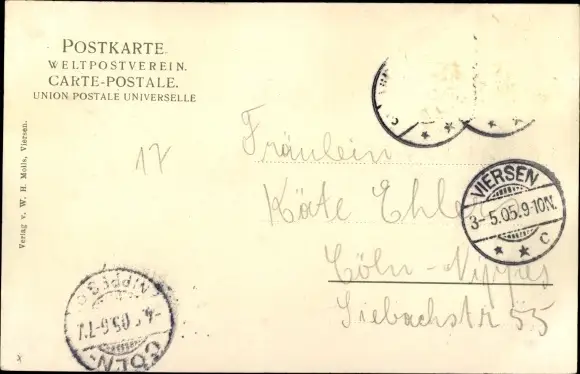 POSTKARTE.
WELTPOSTVEREIN.
CARTE-POSTALE.
UNION POSTALE UNIVERSELLE
Verlag v. W. H. Molls, Viersen.
17
Fräulein
Käte Ehlers
Cöln-Nippes
Siebachstr 55
VIERSEN
3-5.05.9-10N.
* * c
NIPPES
CÖLN-